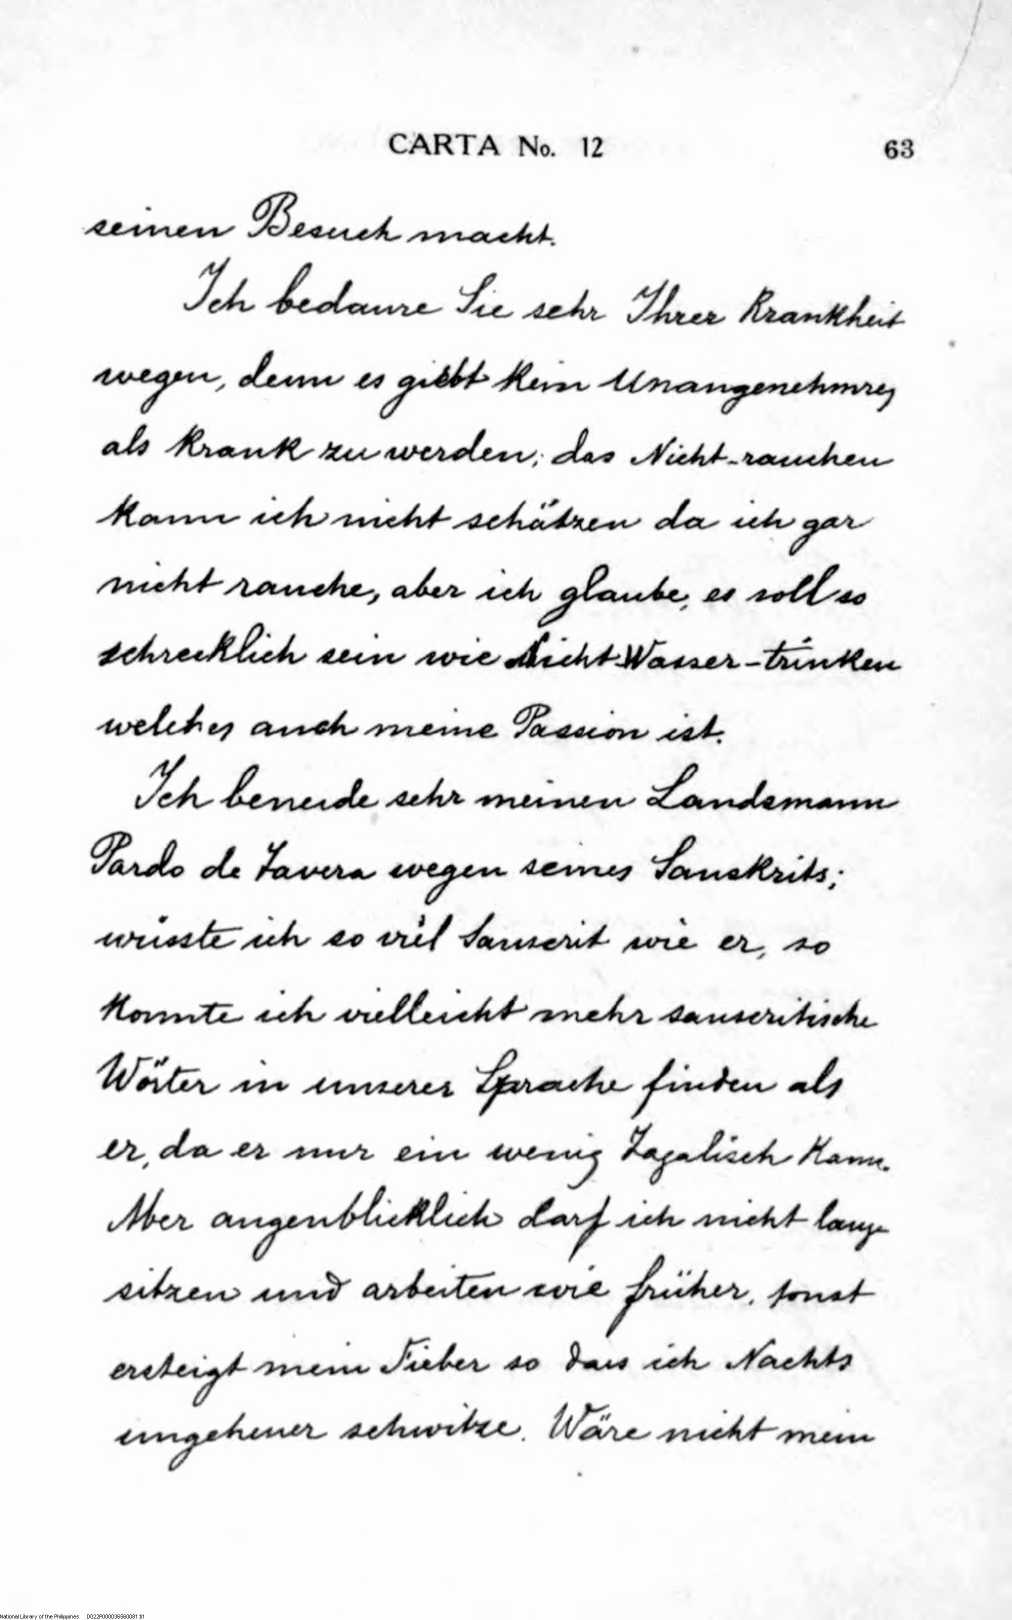 CARTA No. 12 63
seinen Besuch macht.
Ich bedaure Sie sehr Ihrer Krankheit
wegen, denn es giebt kein Unangenehmres
als krank zu werden; das Nicht-rauchen
kann ich nicht schätzen da ich gar
nicht rauche, aber ich glaube, es soll so
schrecklich sein wie Nicht-Wasser-trinken
welches auch meine Passion ist.
Ich beneide sehr meinen Landsmann
Pardo de Tavera wegen seines Sanskrits;
wüsste ich so viel Sanscrit wie er, so
konnte ich vielleicht mehr sanscritische
Wörter in unserer Sprache finden als
er, da er nur ein wenig Tagalisch kann.
Aber augenblicklich darf ich nicht lange
sitzen und arbeiten wie früher, sonst
ersteigt mein Fieber so dass ich Nachts
ungeheuer schwitze. Wäre nicht mein
National Library of the Philippines